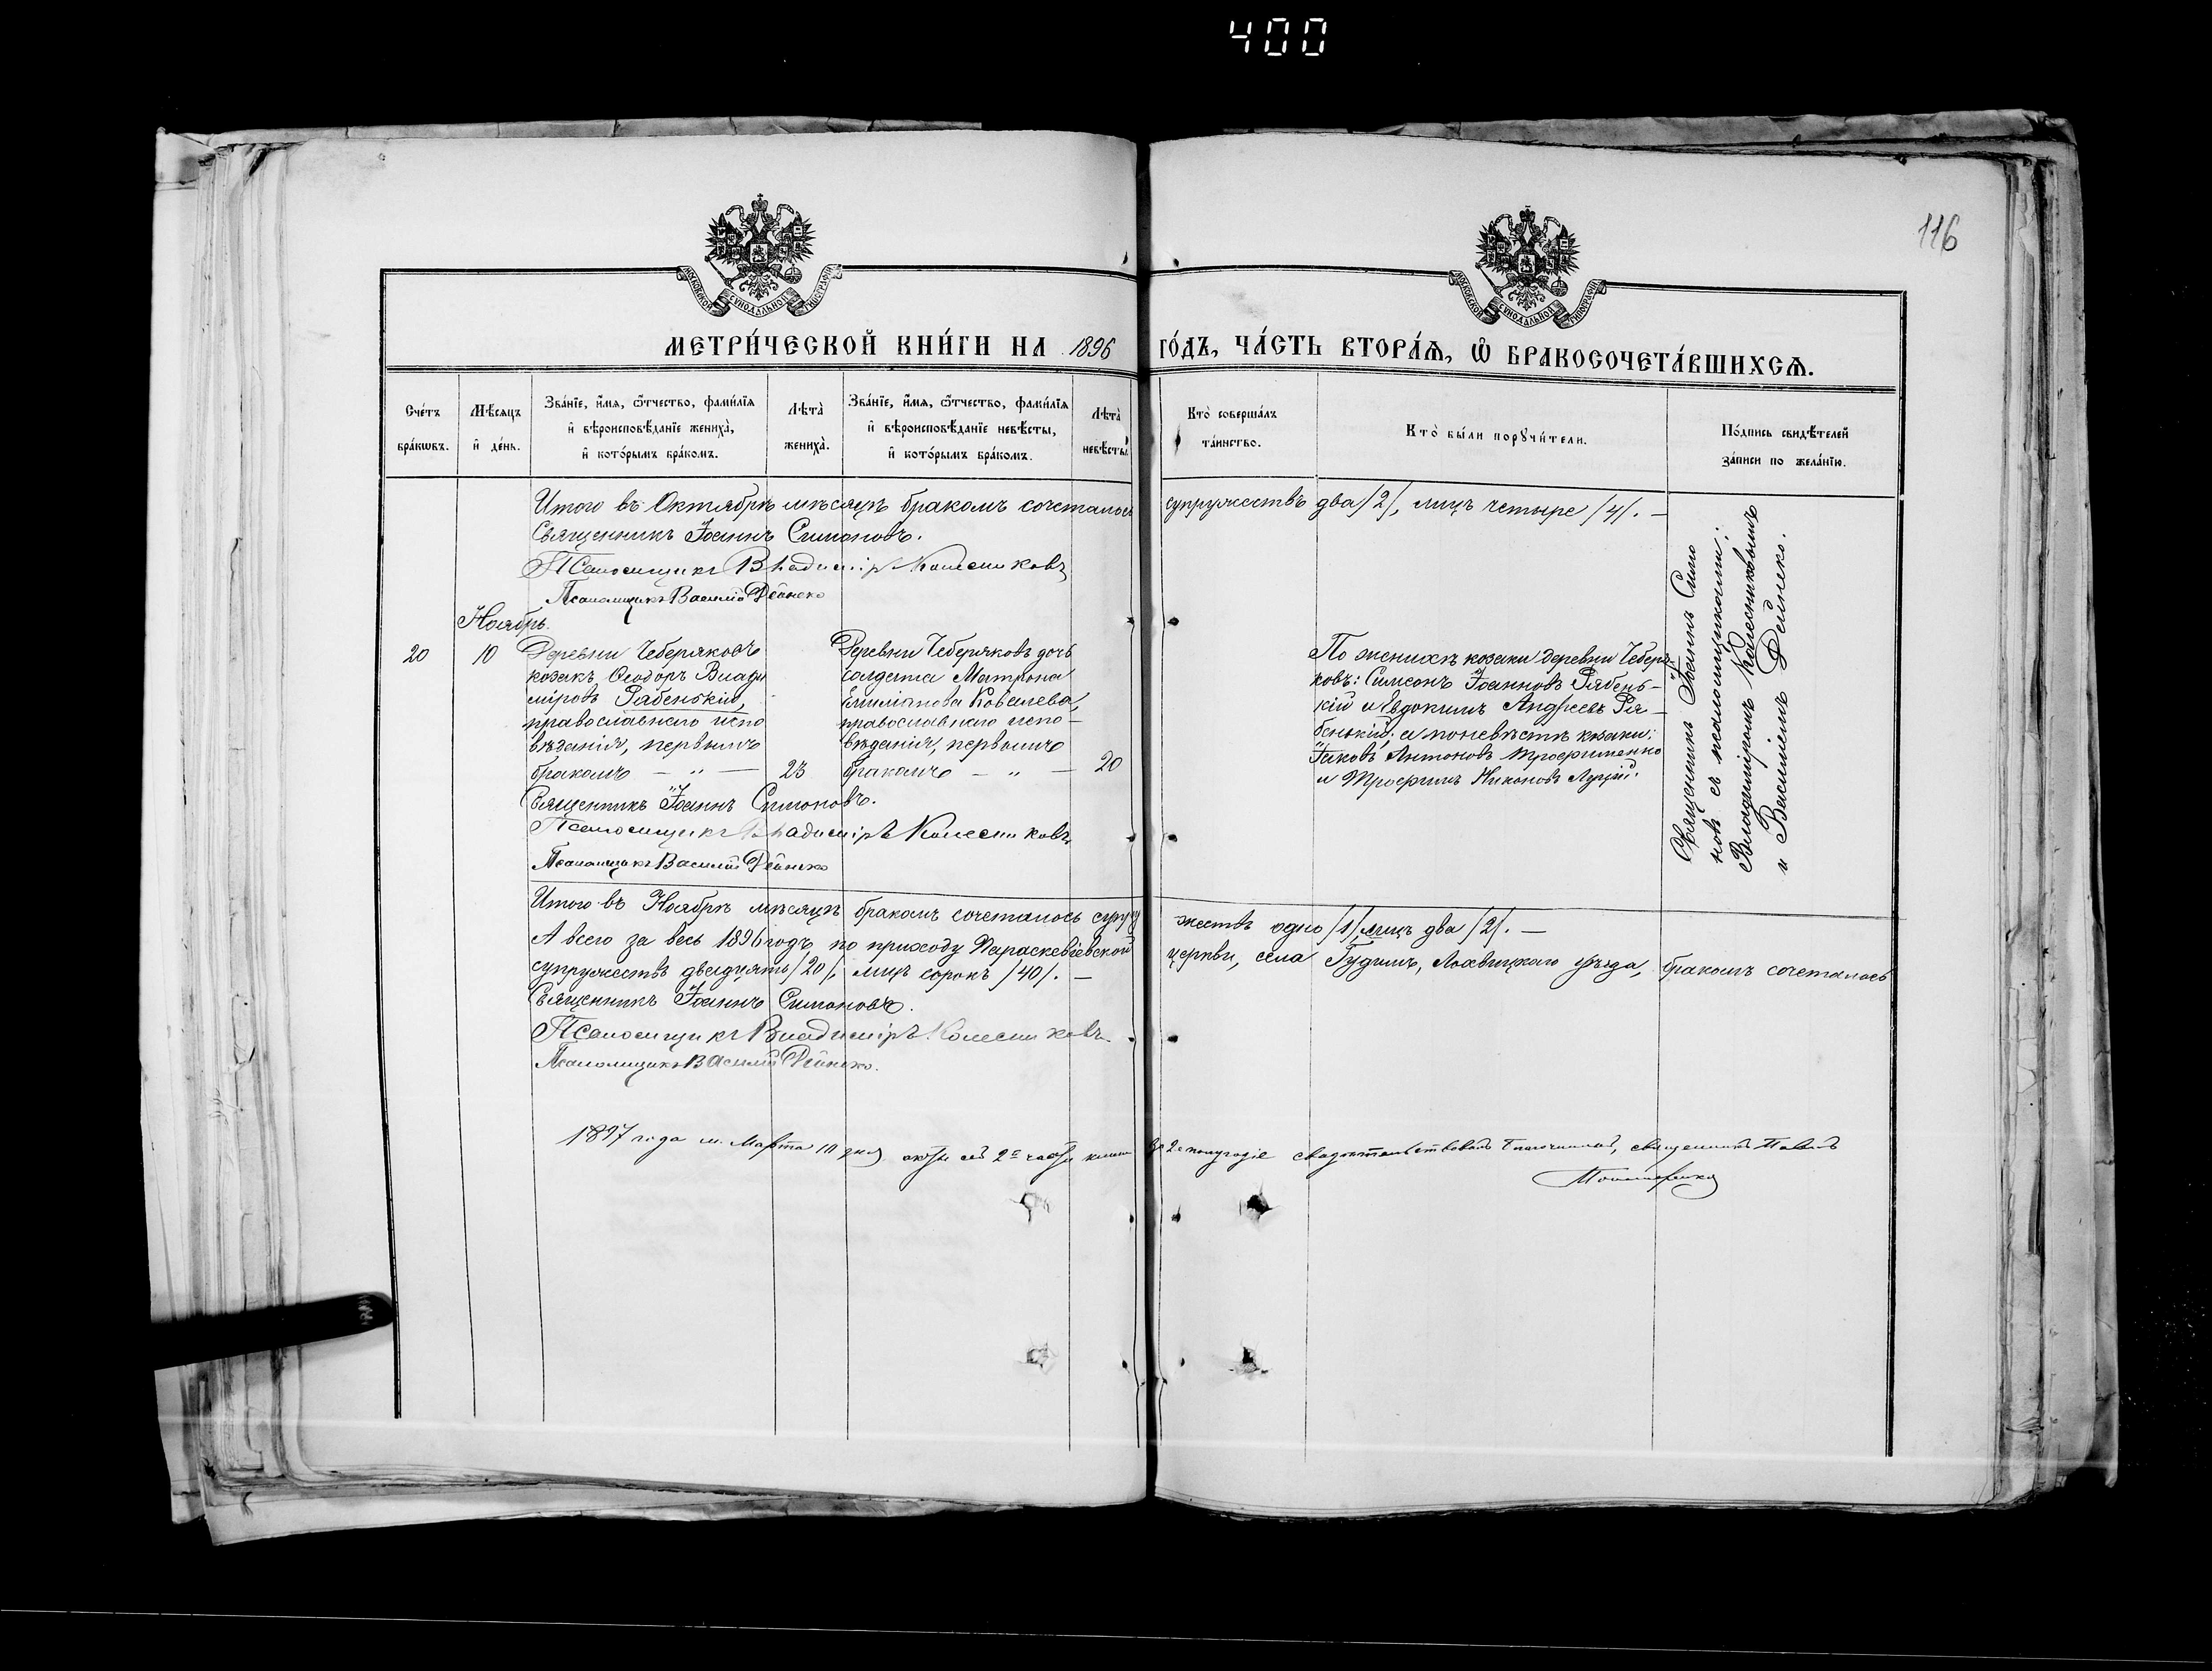 400
116
МОСКОВСКОЙ СѴНОДАЛЬНОЙ ТИПОГРАФІИ
МОСКОВСКОЙ СѴНОДАЛЬНОЙ ТИПОГРАФІИ
МЕТРИ́ЧЕСКОЙ КНИ́ГИ НА 1896 ГО́ДЪ, ЧА́СТЬ ВТОРА́Ѧ, Ѡ҆ БРАКОСОЧЕТА́ВШИХСѦ.
Сче́тъ бра́кѡвъ.
Мѣ́сяцъ и҆ де́нь.
Зва́нїе, и҆́мя, ѻ҆́тчество, фами́лїя и҆ вѣроисповѣ́данїе жениха̀, и҆ кото́рымъ бра́комъ.
Лѣта̀ жениха̀.
Зва́нїе, и҆́мя, ѻ҆́тчество, фами́лїя и҆ вѣроисповѣ́данїе невѣ́сты, и҆ кото́рымъ бра́комъ.
Лѣта̀ невѣ́сты.
Кто̀ соверша́лъ та́инство.
Кто̀ бы́ли порꙋчи́тели.
По́дпись свидѣ́телей за́писи по жела́нїю.
Итого въ Октябрѣ мѣсяцѣ бракомъ сочеталось супружествъ два /2/, лицъ четыре /4/. —
Священникъ Іоаннъ Симоновъ.
Псаломщикъ Владиміръ Колесниковъ
Псаломщикъ Василій Дейнеко
Ноябрь.
20
10
Деревни Чеберяковъ
козакъ Ѳеодоръ Влади
міровъ Рябенькій,
православнаго испо
вѣданія, первымъ
бракомъ — „ —
23
Деревни Чеберяковъ дочь
солдата Матрона
Емиліанова Ковалева,
православнаго испо—
вѣданія, первымъ
бракомъ — „ —
20
По женихѣ козаки деревни Чеберя
ковъ: Симеонъ Іоанновъ Рябень—
кій и Евдокимъ Андреевъ Ря—
бенькій; а по невѣстѣ козаки:
Іаковъ Антоновъ Трофименко
и Трофимъ Никоновъ
Священникъ Іоаннъ Симо
новъ съ псаломщиками:
Владиміромъ Колесниковымъ
и Василіемъ Дейнеко.
Священникъ Іоаннъ Симоновъ.
Псаломщикъ Владиміръ Колесниковъ
Псаломщикъ Василій Дейнеко
Итого въ Ноябрѣ мѣсяцѣ бракомъ сочеталось супружествъ одно /1/, лицъ два /2/. —
А всего за весь 1896 годъ по приходу Параскевіевской церкви, села Гудимъ, Лохвицкаго уѣзда, бракомъ сочеталось
супружествъ двадцять /20/, лицъ сорокъ /40/. —
Священникъ Іоаннъ Симоновъ.
Псаломщикъ Владиміръ Колесниковъ.
Псаломщикъ Василій Дейнеко.
1897 года м. Марта 10 дня 2е полугодіе свидѣтельствовалъ Благочинный, священникъ Павелъ